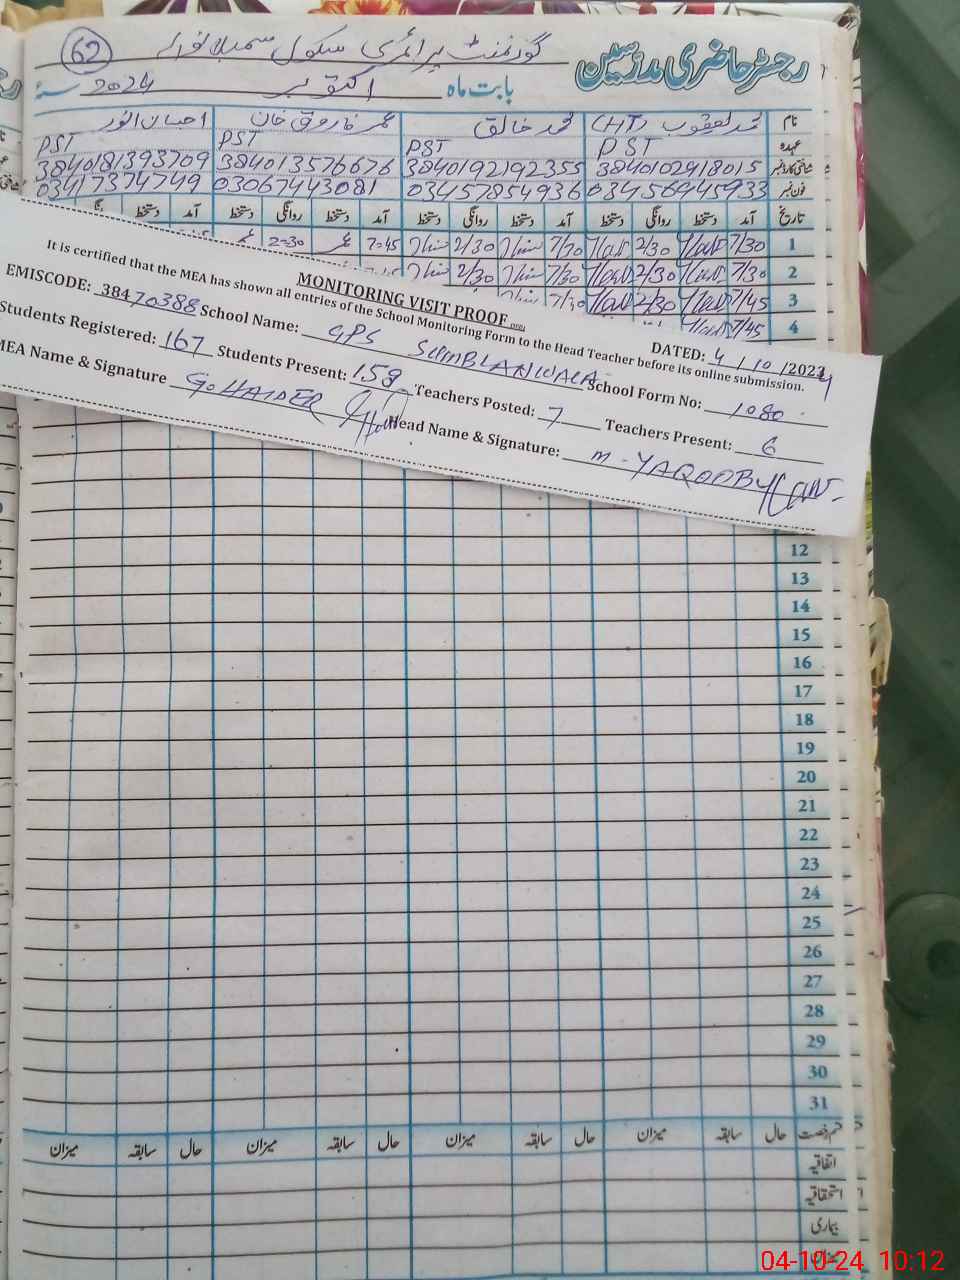 62 گورنمنٹ پرائمری سکول سمبلانوالہ رجسٹر حاضری مدرسین
بابت ماہ اکتوبر 2024 سنہ
نام محمد یعقوب (HT) محمد خالق عمر فاروق خان احسان انور
عہدہ PST PST PST PST
شناختی کارڈ نمبر 3840102918015 3840192192355 384013576676 3840181393709
فون نمبر 03456945933 03457854936 03067443081 03417374749
تاریخ آمد دستخط روانگی دستخط آمد دستخط روانگی دستخط آمد دستخط روانگی دستخط آمد دستخط
1 7/30 2/30 7/30 2/30 7=45 2=30
2 7/30 2/30 7/30 2/30
3 7/45 2/30 7/30
4 7/45
MONITORING VISIT PROOF
It is certified that the MEA has shown all entries of the School Monitoring Form to the Head Teacher before its online submission.
DATED: 4/10/2024
EMISCODE: 38470388 School Name: GPS SUMBLANWALA School Form No: 1080
Students Registered: 167 Students Present: 158 Teachers Posted: 7 Teachers Present: 6
MEA Name & Signature G. HAIDER Head Name & Signature: M. YAQOOB
12
13
14
15
16
17
18
19
20
21
22
23
24
25
26
27
28
29
30
31
قسم رخصت حال سابقہ میزان حال سابقہ میزان حال سابقہ میزان حال سابقہ میزان
اتفاقیہ
استحقاقیہ
بیماری
میزان
04-10-24 10:12